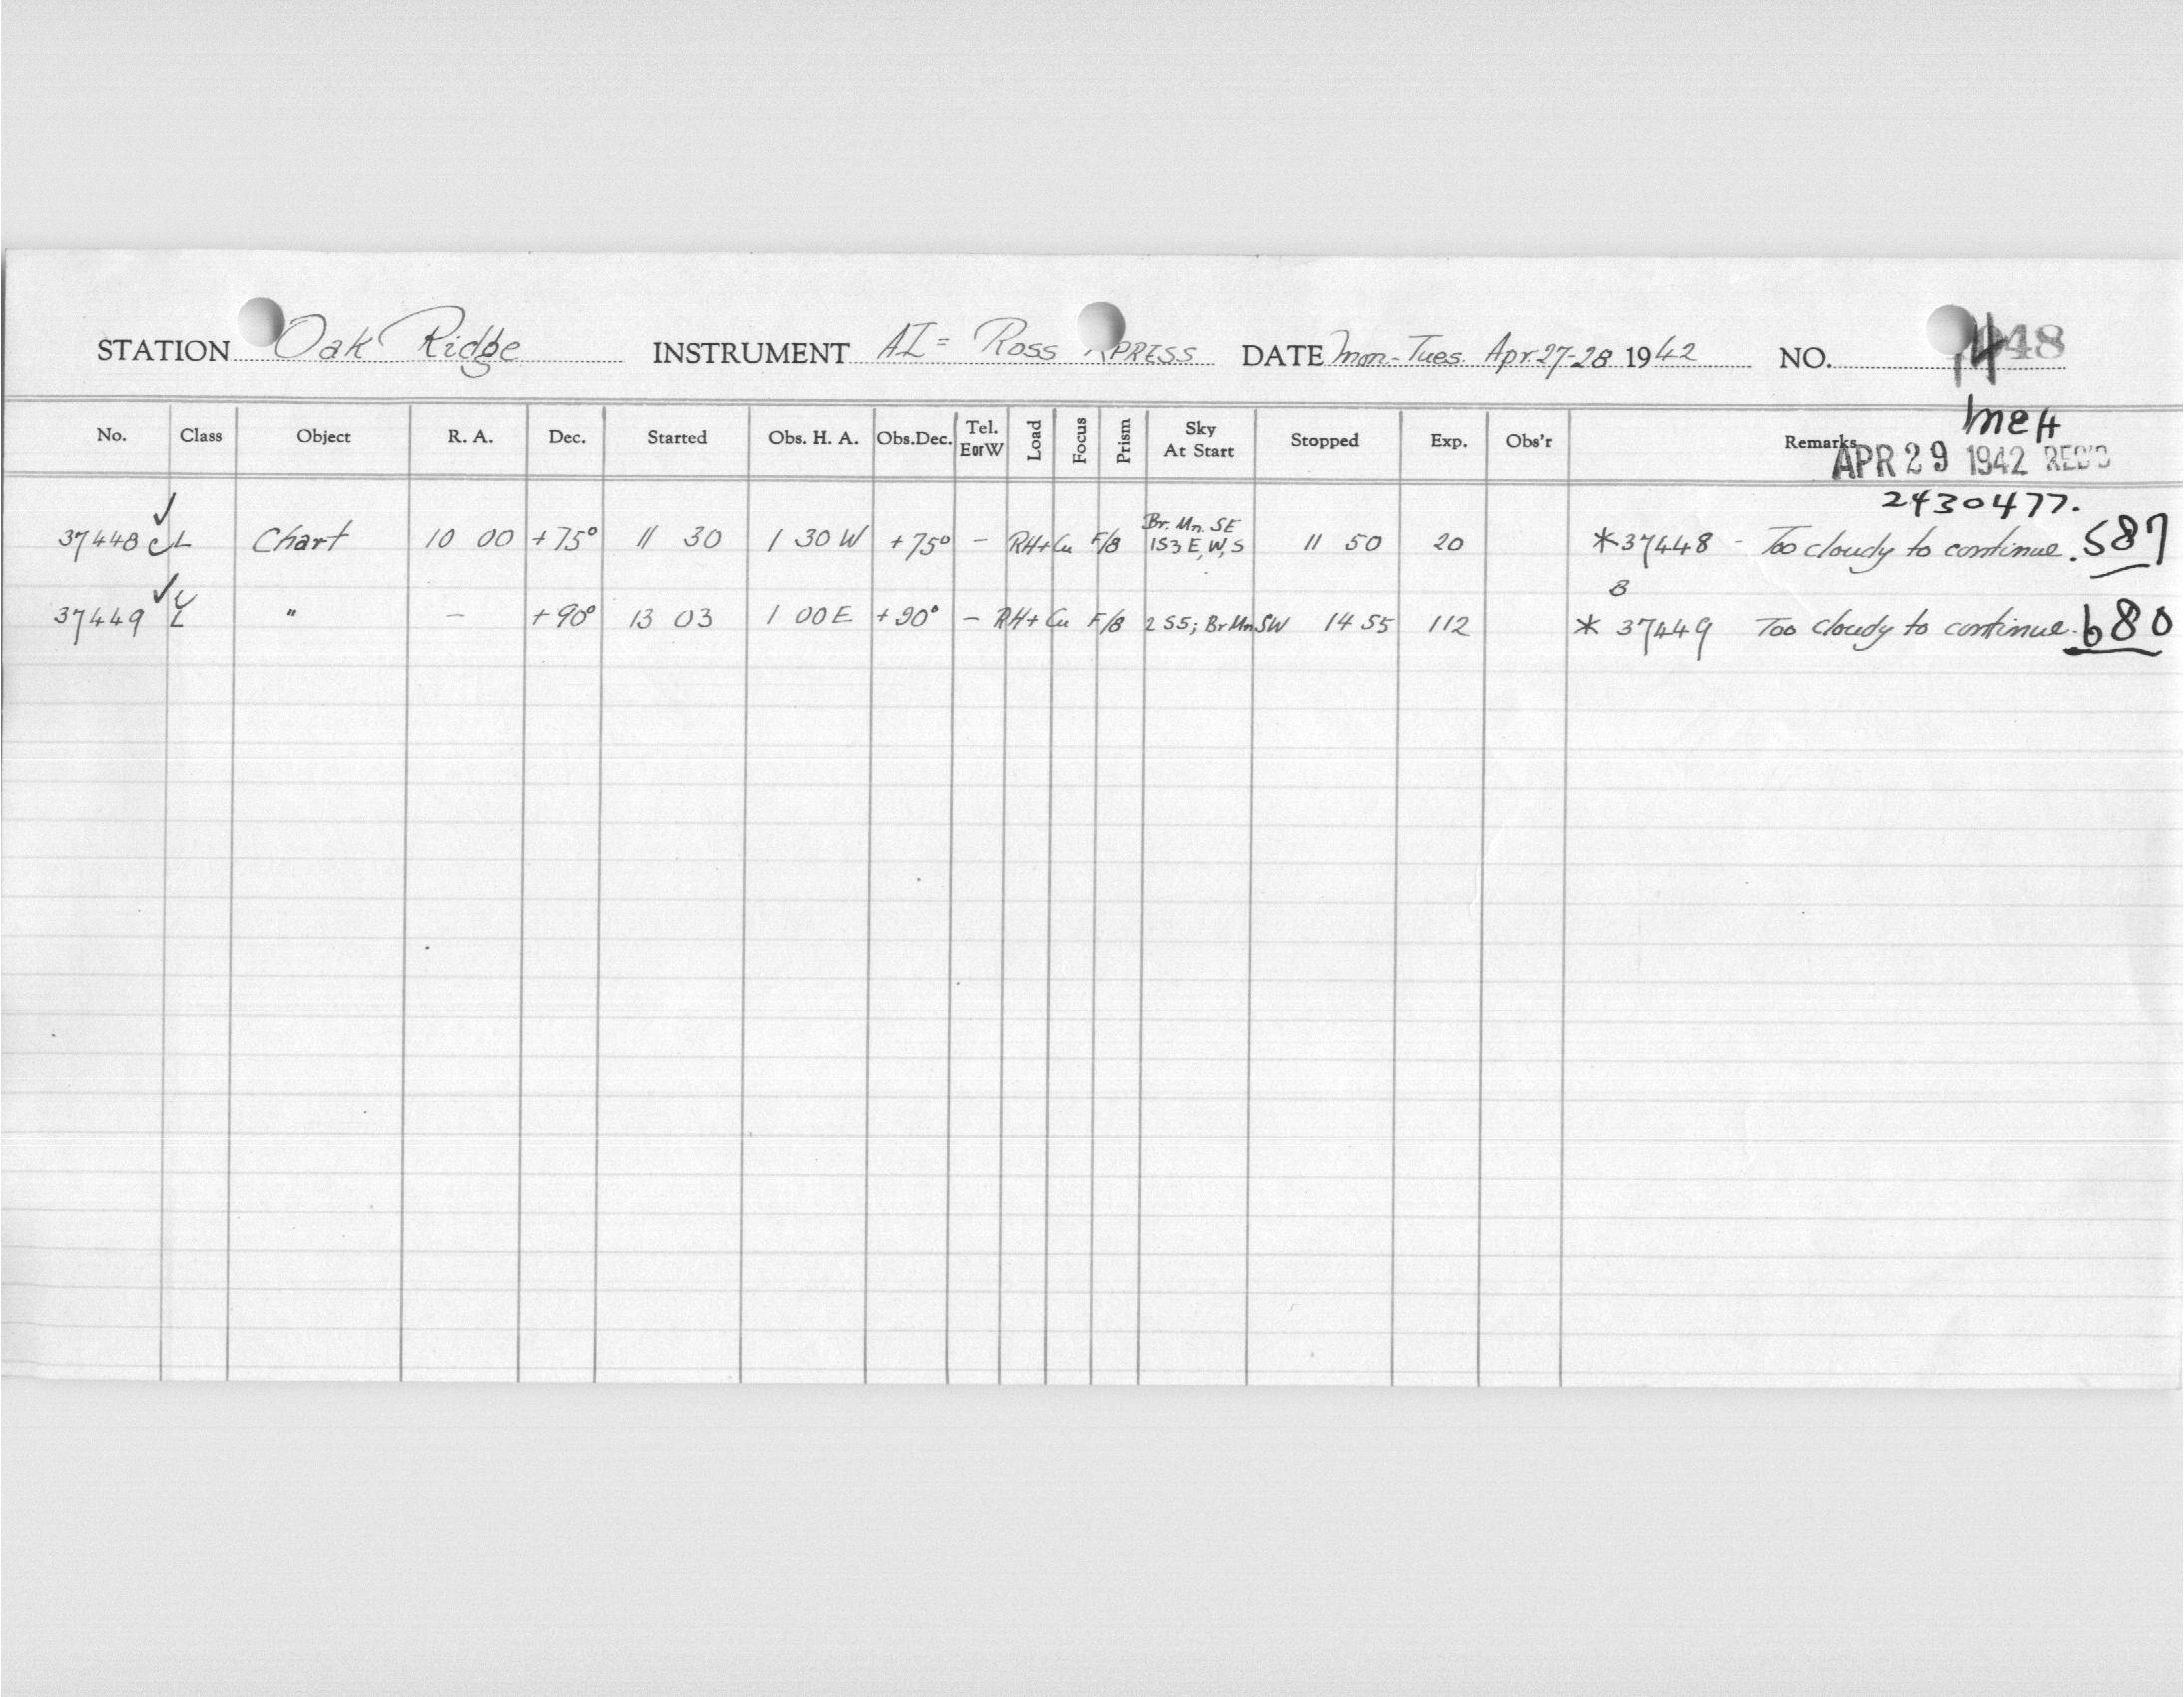 STATION Oak Ridge INSTRUMENT AI = Ross XPRESS DATE Mon.-Tues. Apr. 27-28 1942 NO. 48
MEH
No. Class Object R. A. Dec. Started Obs. H. A. Obs.Dec. Tel. E or W Load Focus Prism Sky At Start Stopped Exp. Obs'r Remarks
APR 29 1942 REC'D
2430477.
37448 CL Chart 10 00 +75° 11 30 1 30 W +75° - RH+Cu F/8 Br. Mn. SE 1S3 E, W, S 11 50 20 *37448 - Too cloudy to continue. 587
8
37449 L " - +90° 13 03 1 00 E +90° - RH+Cu F/8 2 S5; Br Mn SW 14 55 112 * 37449 Too cloudy to continue. 680